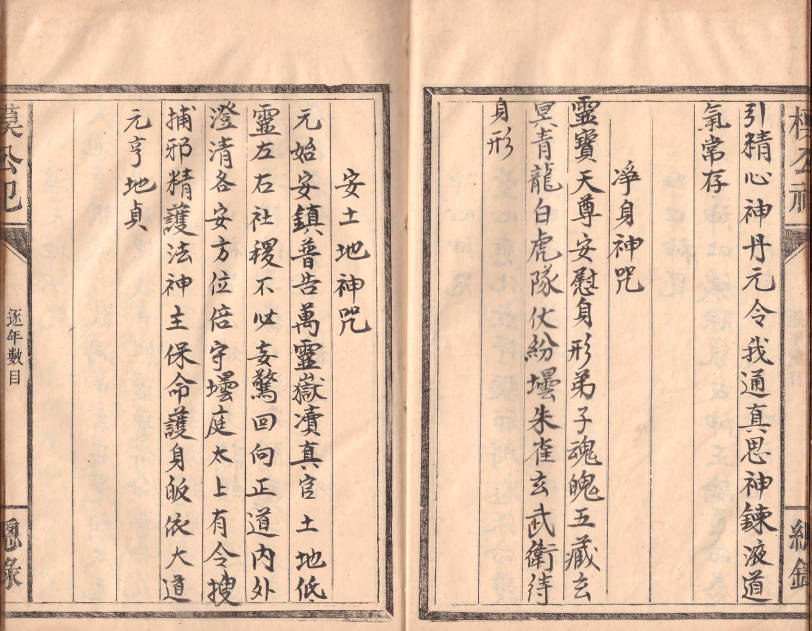 引精心神丹元令我通真思神鍊液道
氣常存
凈身神咒
靈寶天尊安慰身形弟子魂魄五藏玄
冥青龍白虎隊仗紛壜朱雀玄武衛待
身形
安土地神咒
元始安鎮普告萬靈嶽瀆真官土地低
靈左右社稷不必妄驚回向正道內外
澄清各安方位倍守壜庭太上有令搜
捕邪精護法神主保命護身皈依大道
元亨地貞
逐年數目
總錄